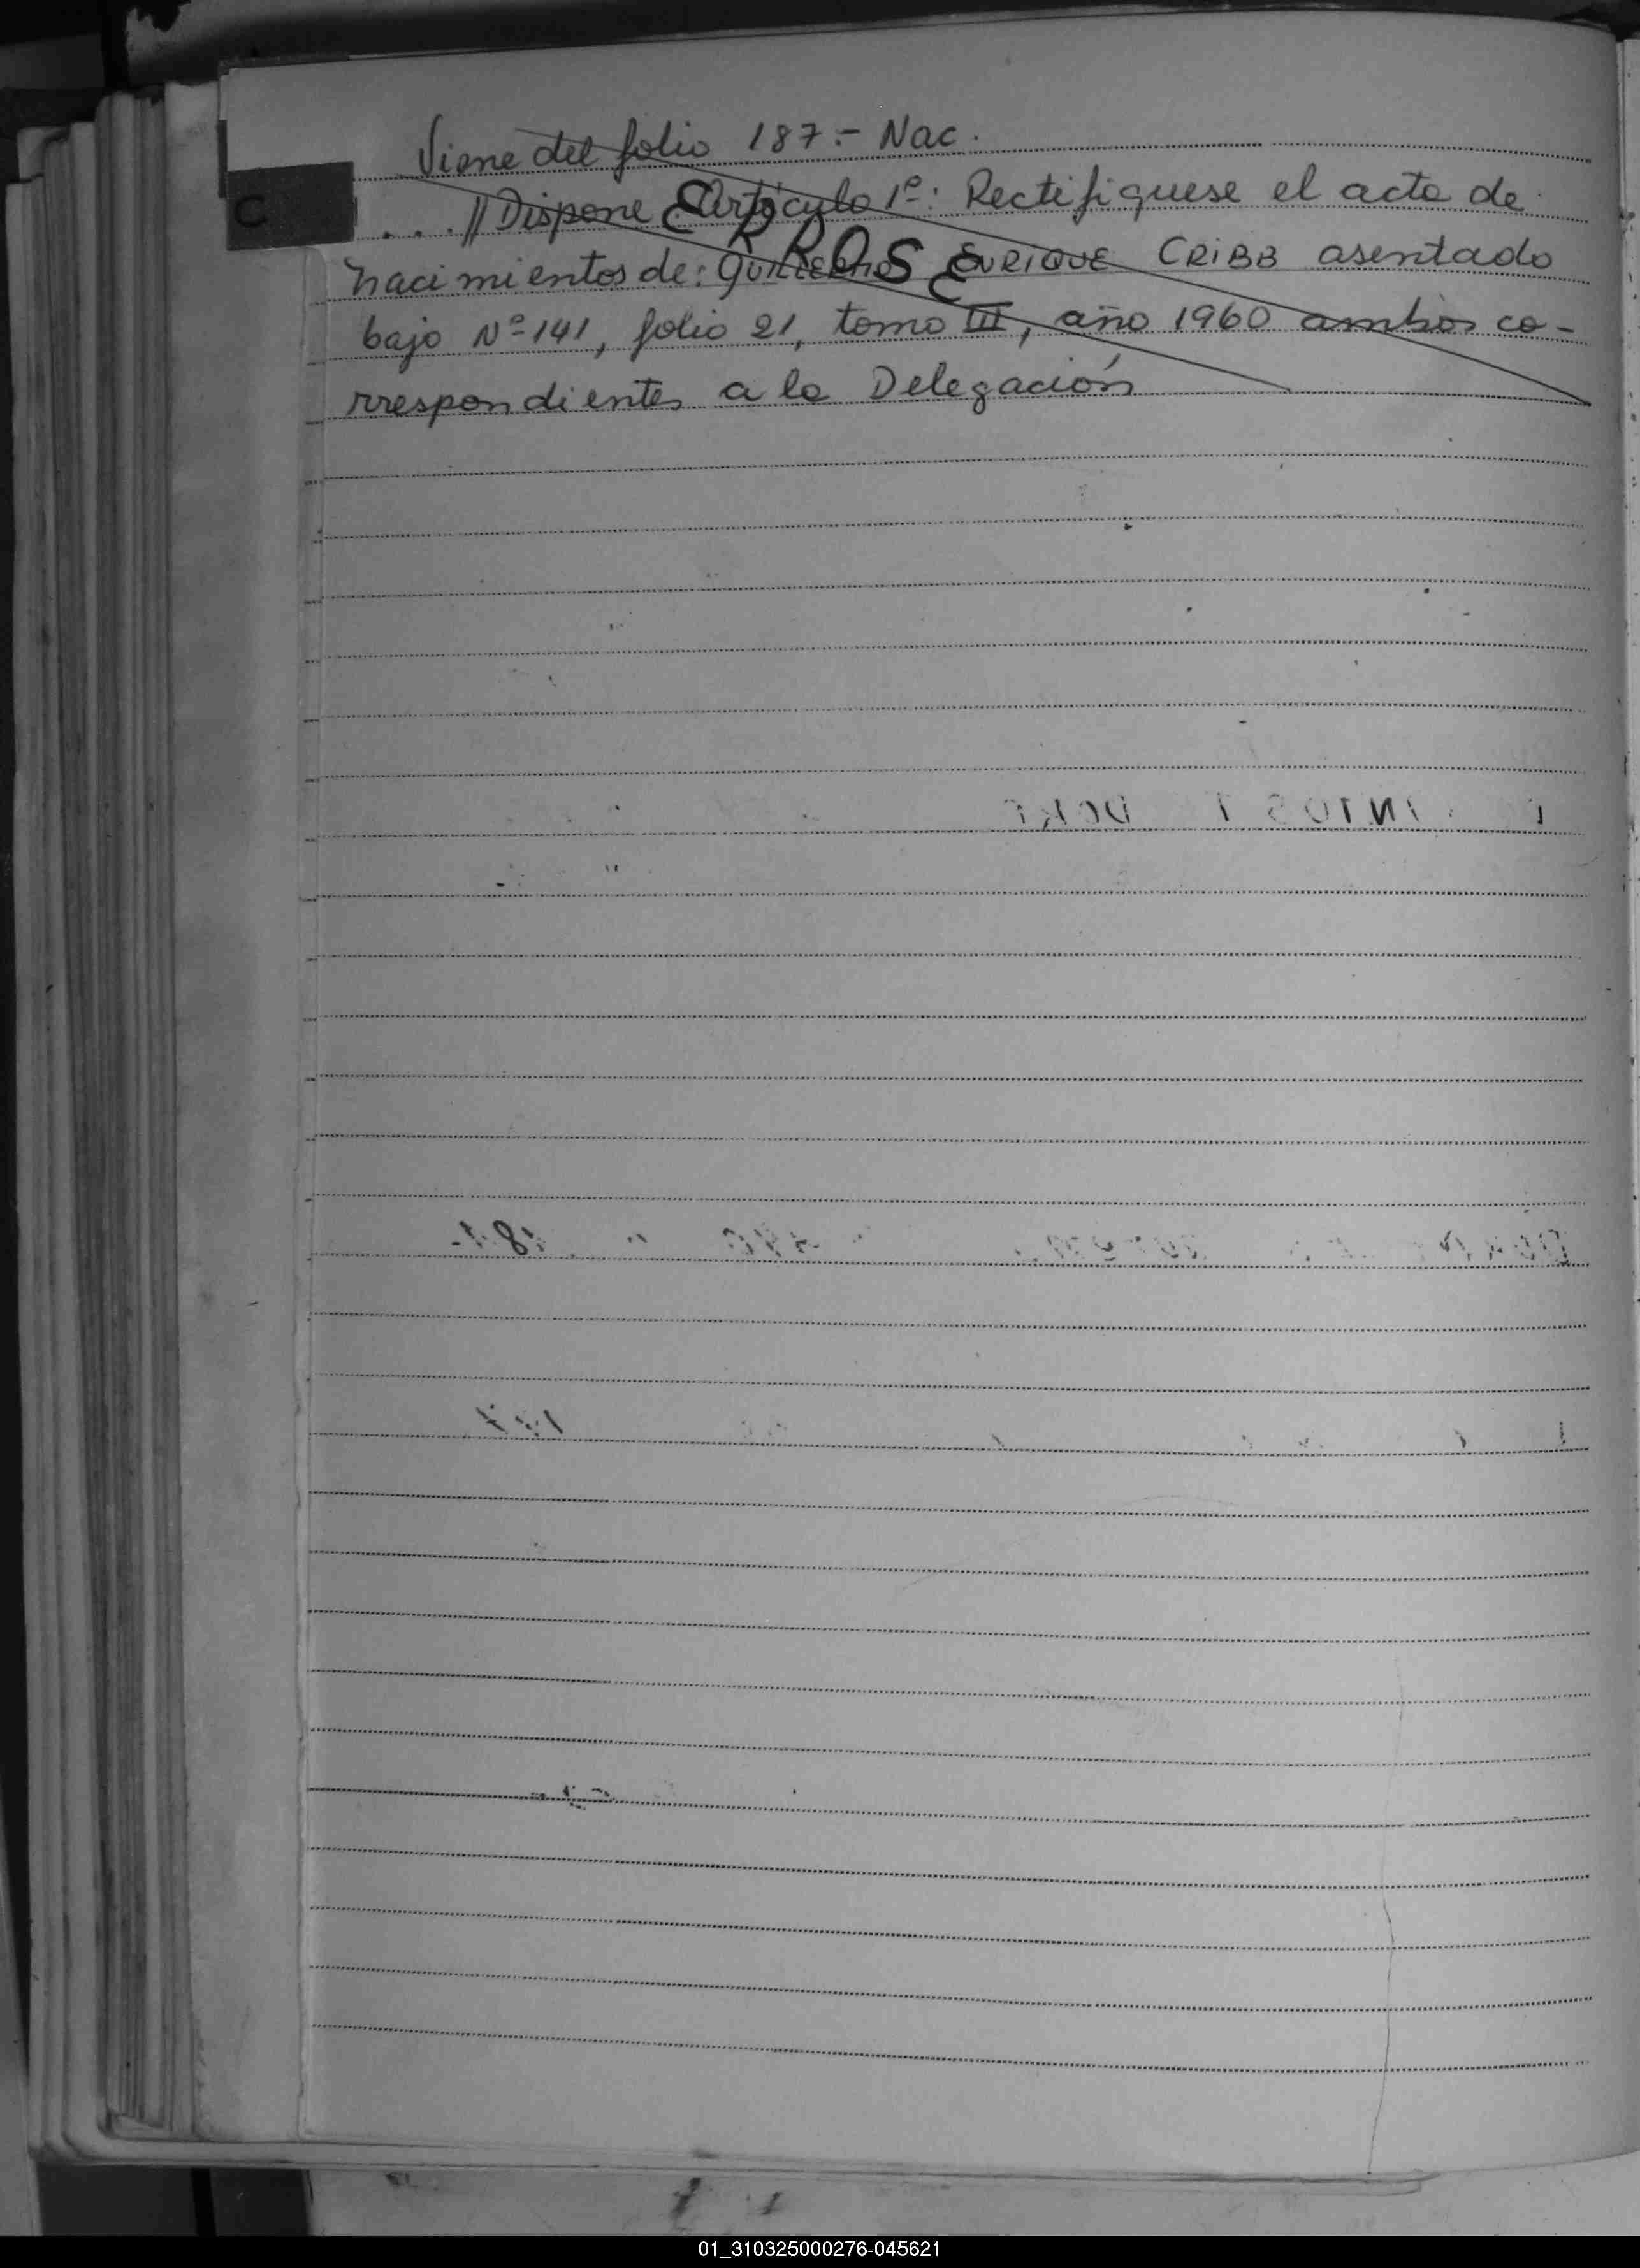 Viene del folio 187.- Nac.
C
...// Dispone Artículo 1º: Rectifiquese el acta de
nacimientos de: Guillermo Enrique CRIBB asentado
bajo Nº 141, folio 21, tomo III, año 1960 ambos co-
rrespondientes a la Delegación
ERROSE
01_310325000276-045621